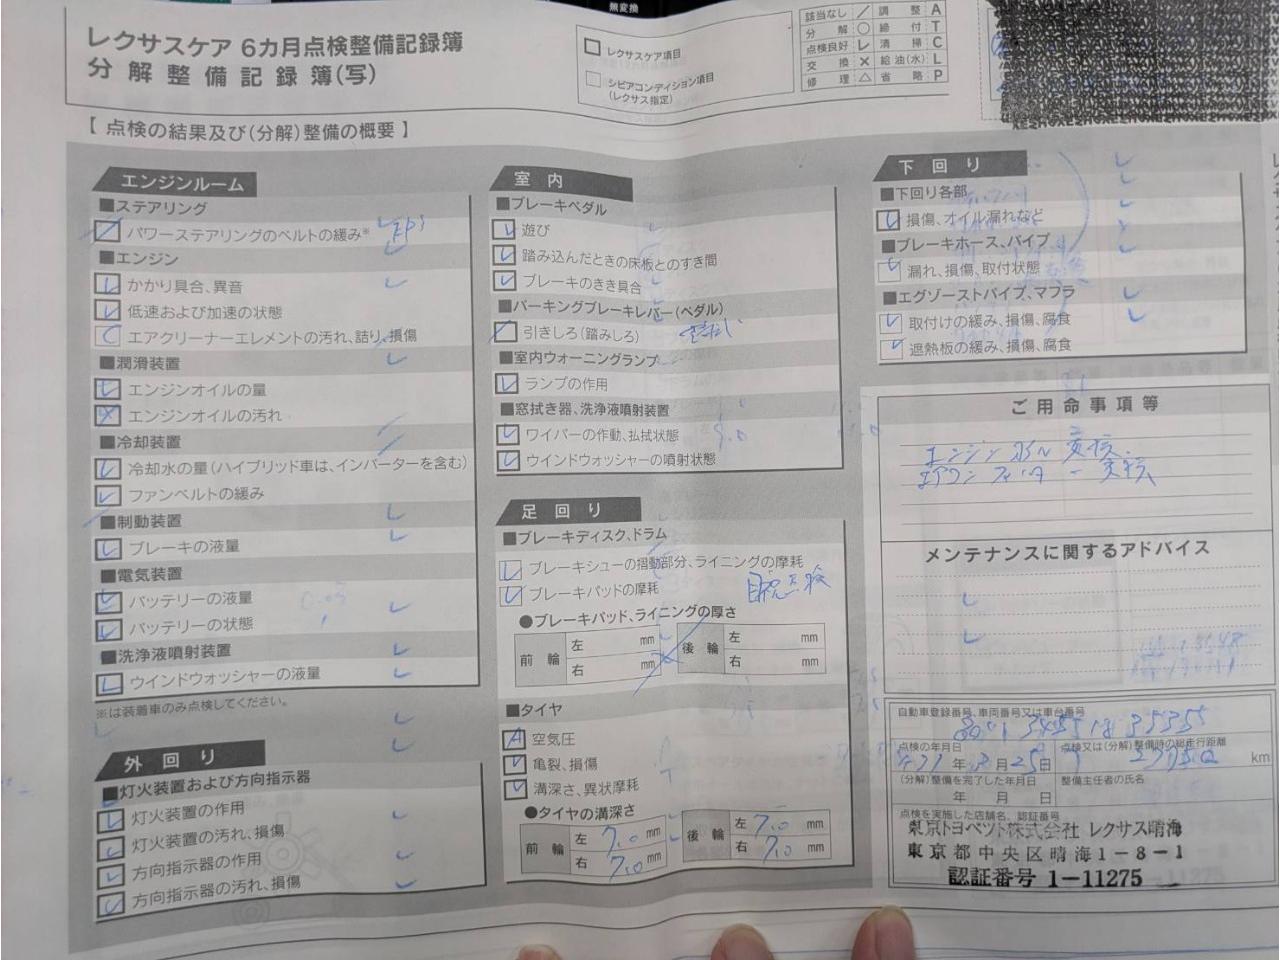 無変換
レクサスケア 6カ月点検整備記録簿
分解整備記録簿(写)
レクサスケア項目
シビアコンディション項目
(レクサス指定)
該当なし ／ 調整 A
分解 ○ 締付 T
点検良好 レ 清掃 C
交換 × 給油(水) L
修理 △ 省略 P
【 点検の結果及び(分解)整備の概要 】
エンジンルーム
■ステアリング
パワーステアリングのベルトの緩み※
■エンジン
かかり具合、異音
低速および加速の状態
エアクリーナーエレメントの汚れ、詰り、損傷
■潤滑装置
エンジンオイルの量
エンジンオイルの汚れ
■冷却装置
冷却水の量(ハイブリッド車は、インバーターを含む)
ファンベルトの緩み
■制動装置
ブレーキの液量
■電気装置
バッテリーの液量
バッテリーの状態
■洗浄液噴射装置
ウインドウォッシャーの液量
※は装着車のみ点検してください。
外回り
■灯火装置および方向指示器
灯火装置の作用
灯火装置の汚れ、損傷
方向指示器の作用
方向指示器の汚れ、損傷
室内
■ブレーキペダル
遊び
踏み込んだときの床板とのすき間
ブレーキのきき具合
■パーキングブレーキレバー(ペダル)
引きしろ(踏みしろ)
■室内ウォーニングランプ
ランプの作用
■窓拭き器、洗浄液噴射装置
ワイパーの作動、払拭状態
ウインドウォッシャーの噴射状態
足回り
■ブレーキディスク、ドラム
ブレーキシューの摺動部分、ライニングの摩耗
ブレーキパッドの摩耗
目視点検
●ブレーキパッド、ライニングの厚さ
前輪 左 mm 後輪 左 mm
右 mm 右 mm
■タイヤ
A 空気圧
亀裂、損傷
溝深さ、異状摩耗
●タイヤの溝深さ
前輪 左 7.0 mm 後輪 左 7.0 mm
右 7.0 mm 右 7.0 mm
下回り
■下回り各部
損傷、オイル漏れなど
■ブレーキホース、パイプ
漏れ、損傷、取付状態
■エグゾーストパイプ、マフラ
取付けの緩み、損傷、腐食
遮熱板の緩み、損傷、腐食
ご用命事項等
エンジンオイル交換
エアコンフィルター交換
メンテナンスに関するアドバイス
自動車登録番号、車両番号又は車台番号
点検の年月日
点検又は(分解)整備時の総走行距離
年 月 25 日
km
(分解)整備を完了した年月日
整備主任者の氏名
年 月 日
点検を実施した店舗名、認証番号
東京トヨペット株式会社 レクサス晴海
東京都中央区晴海1-8-1
認証番号 1-11275